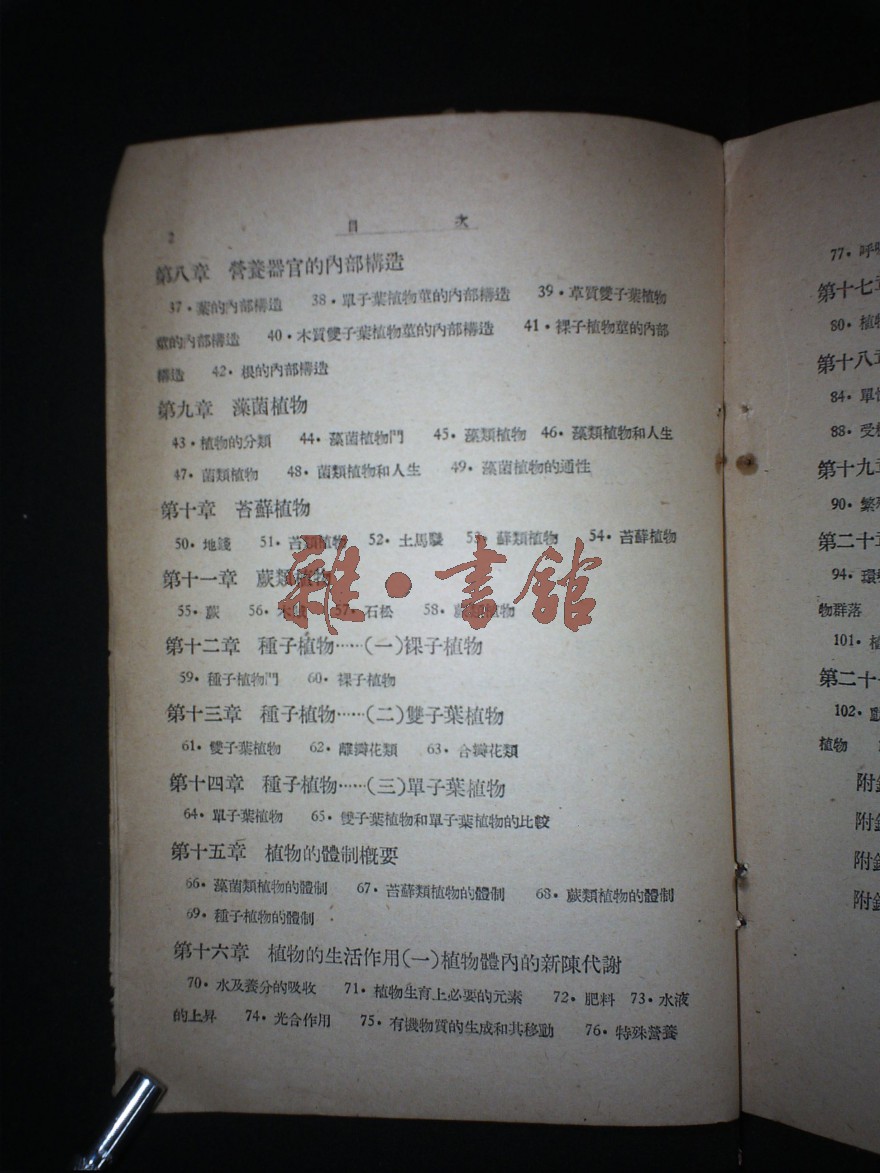 2
目 次
第八章 營養器官的內部構造
37·葉的內部構造 38·單子葉植物莖的內部構造 39·草質雙子葉植物
莖的內部構造 40·木質雙子葉植物莖的內部構造 41·裸子植物莖的內部
構造 42·根的內部構造
第九章 藻菌植物
43·植物的分類 44·藻菌植物門 45·藻類植物 46·藻類植物和人生
47·菌類植物 48·菌類植物和人生 49·藻菌植物的通性
第十章 苔蘚植物
50·地錢 51·苔類植物 52·土馬騣 53·蘚類植物 54·苔蘚植物
第十一章 蕨類植物
55·蕨 56·木賊 57·石松 58·蕨類植物
雜·書館
第十二章 種子植物……(一)裸子植物
59·種子植物門 60·裸子植物
第十三章 種子植物……(二)雙子葉植物
61·雙子葉植物 62·離瓣花類 63·合瓣花類
第十四章 種子植物……(三)單子葉植物
64·單子葉植物 65·雙子葉植物和單子葉植物的比較
第十五章 植物的體制概要
66·藻菌類植物的體制 67·苔蘚類植物的體制 68·蕨類植物的體制
69·種子植物的體制
第十六章 植物的生活作用(一)植物體內的新陳代謝
70·水及養分的吸收 71·植物生育上必要的元素 72·肥料 73·水液
的上昇 74·光合作用 75·有機物質的生成和其移動 76·特殊營養
77·呼
第十七
80·植
第十八
84·單
88·受
第十九
90·繁
第二十
94·環
物群落
101·植
第二十
102·
植物
附
附
附
附